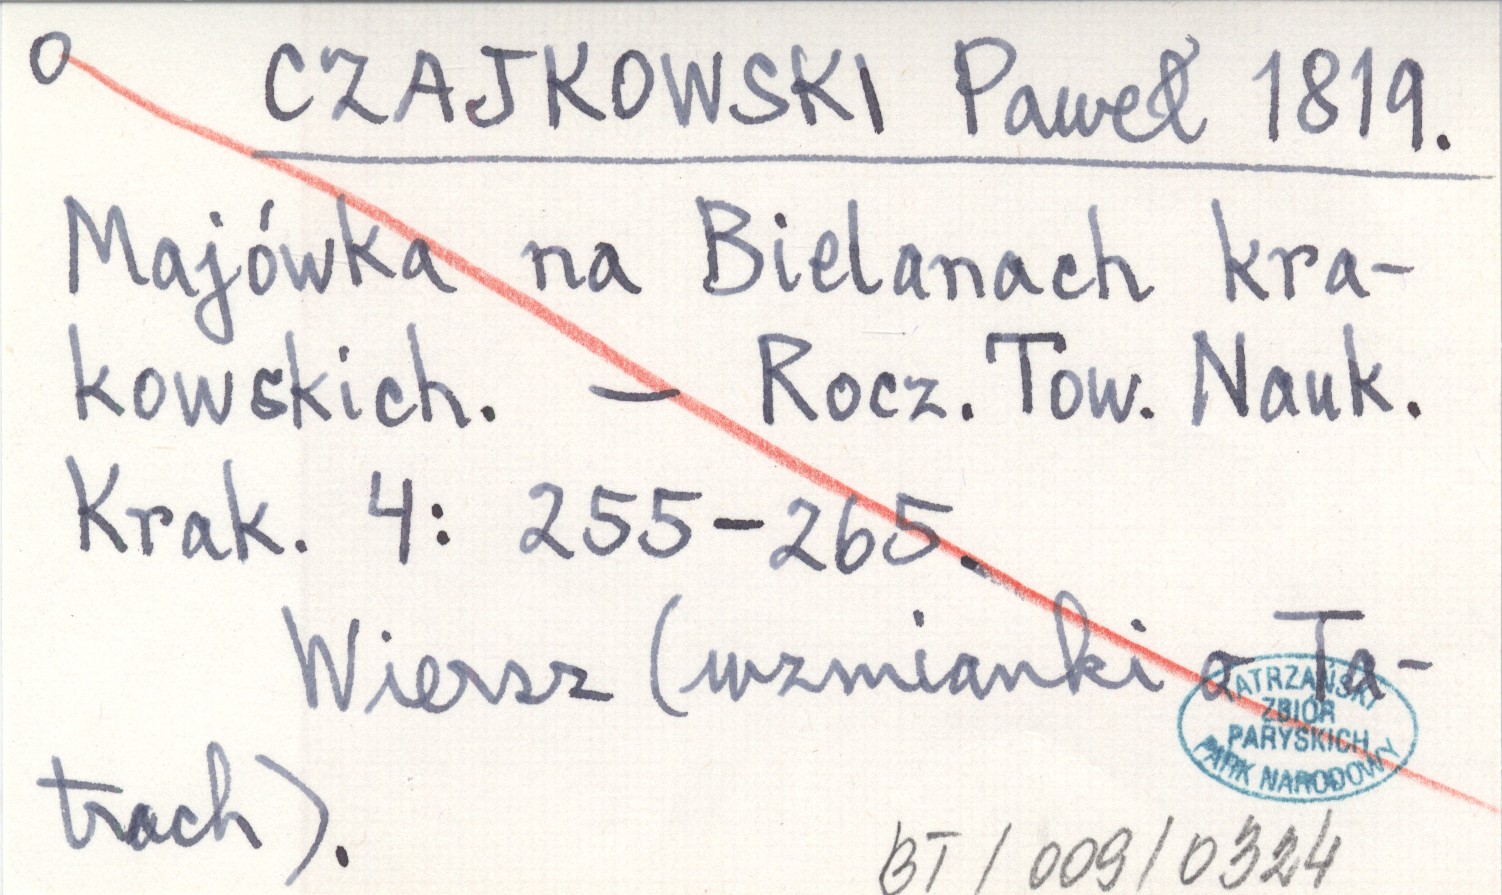 O CZAJKOWSKI Paweł 1819.
Majówka na Bielanach kra-
kowskich. — Rocz. Tow. Nauk.
Krak. 4: 255-265.
Wiersz (wzmianki o Ta-
trach).
TATRZAŃSKI
ZBIÓR
PARYSKICH
PARK NARODOWY
BT/009/0324